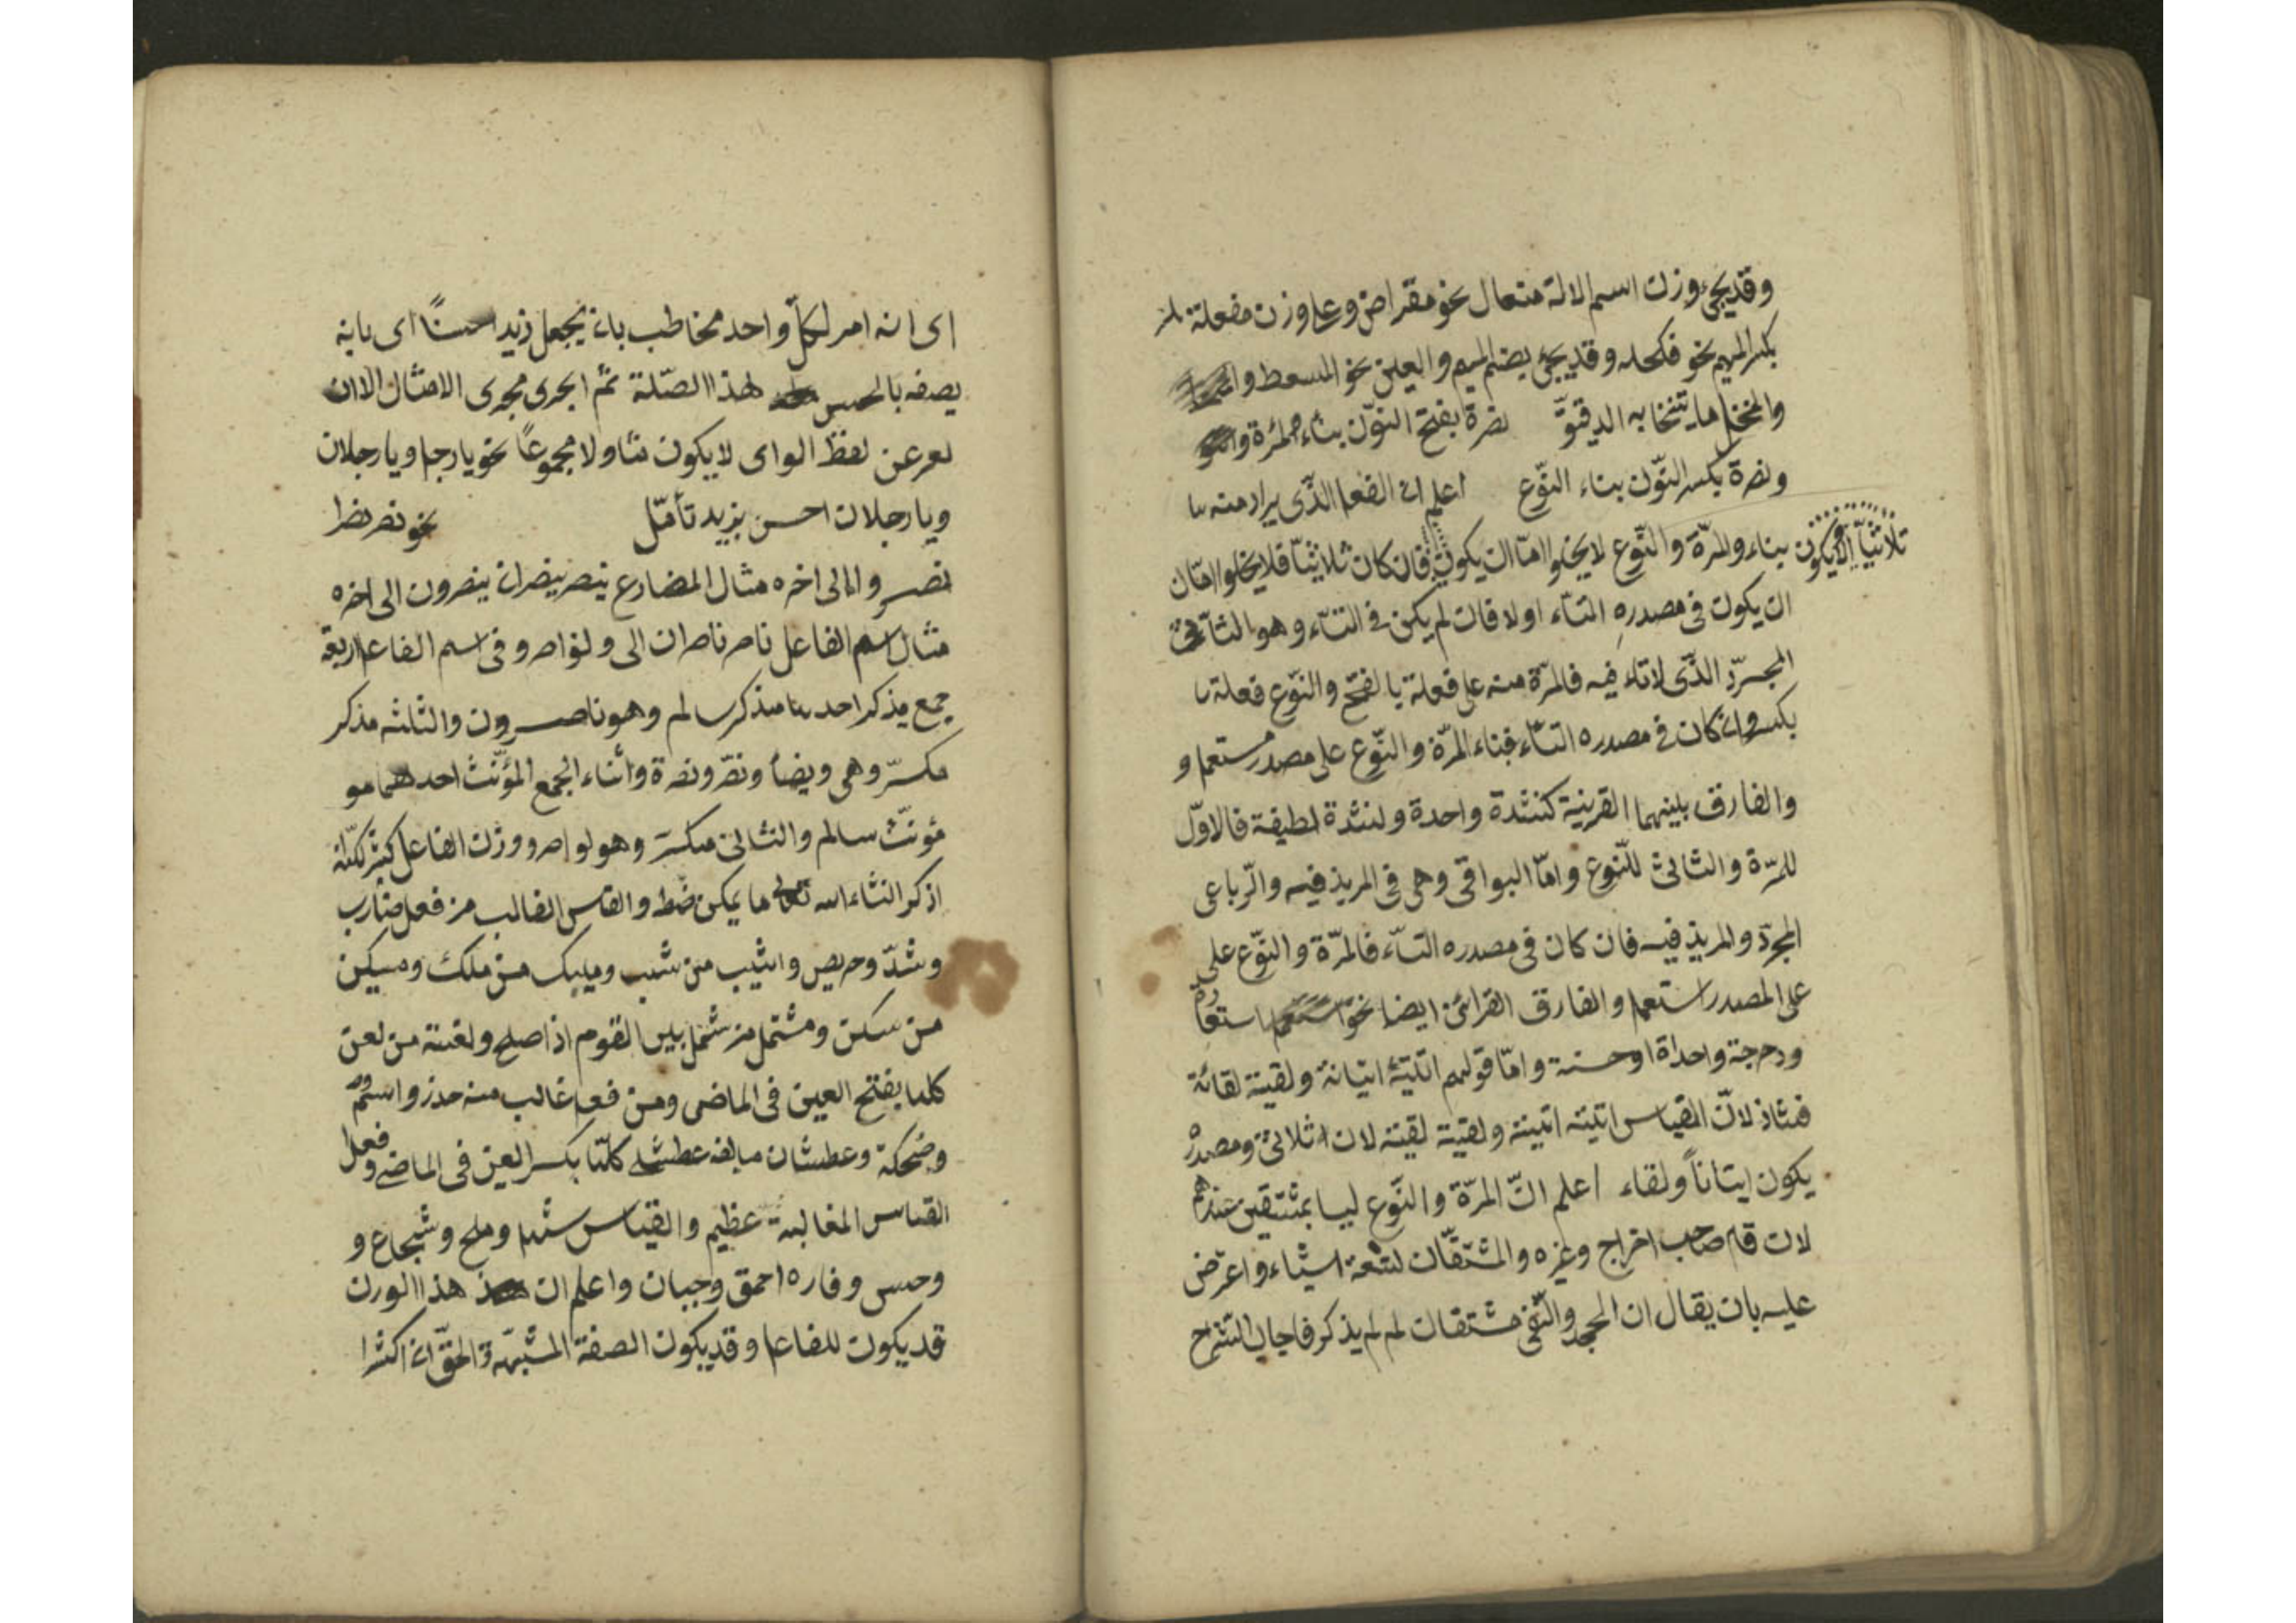 وقد يجئ وزن اسم الالة مفعال نحو مقراض وعلى وزن مفعلة
بكسر الميم نحو مكحله وقد يجئ بضم الميم والعين نحو المسعط
والمنخل ما يتنخا به الدقيق نصرة بفتح النّون بناء مرّة
ونصرة بكسر النّون بناء النّوع اعلم ان الفعل الذّى يراد منه
بناء والمرّة والنّوع لا يخلوا امّا ان يكون فان كان ثلاثيّا فلا يخلوا امّا ان
ثلاثيّا او لا يكون
ان يكون فى مصدره التاء اولا فان لم يكن فى التاء وهو الثلاثى
المجرّد الذّى لا تاء فيه فالمرّة منه على فعلة بالفتح والنّوع فعلة
بكسر وان كان فى مصدره التاء فبناء المرّة والنّوع على مصدر مستعمل و
والفارق بينهما القرينة كنشدة واحدة ونشدة لطيفة فالاوّل
للمرّة والثانى للنّوع وامّا البواقى وهى فى المريذ فيه والرّباعى
المجرّد والمريذ فيه فان كان فى مصدره التاء فالمرّة والنّوع على
على المصدر استعمل والفارق القرائن ايضا نحو
ودحرجة واحداة او حسنة وامّا قولهم اتيتة اتيانة ولقيتة لقائة
فشاذ لانّ القياس اتيته اتيتة ولقيتة لقيتة لان ثلاثى ومصدره
يكون ايتاناً ولقاء اعلم انّ المرّة والنّوع ليسا بمشتقين عندهم
لان قال صاحب اخراج وغيره والمشتقّات لتسعة اشياء واعترض
عليه بان يقال ان الجحد والنّفى مشتقات لم لم يذكر فاجاب الشّرح
اى انه امر لكلّ واحد مخاطب بان يجعل زيد احسناً اى بانه
يصفه بالحسن لهذا الصّلة ثمّ اجرى مجرى الامثال الا ان
عن لفظ الواى لا يكون مثنا ولا مجموعاً نحو يا رجل ويا رجلان
ويا رجلان احسن بزيد تأمّل نحو نصر نصرا
نصروا الى اخره مثال المضارع ينصر ينصران ينصرون الى اخره
مثال اسم الفاعل ناصر ناصران الى ونواصر وفى اسم الفاعل اربعة
جمع مذكر احد منها مذكر سالم وهو ناصرون والثلثه مذكر
مكسّر وهى ونصّر ونصرة واثناء الجمع المؤنّث احدهما مو
مؤنّث سالم والثانى مكسّر وهو نواصر ووزن الفاعل كثير لكنّه
اذكر انشاء الله تعالى ما يمكن ضبط والقياس الغالب من فعل ضارب
وشدّ وحريص واشيب من شيب ومليك من ملك ومسكين
من سكن ومشتمل من شمل بين القوم اذا صلح ولعنة من لعن
كلها بفتح العين فى الماضى ومن فعل غالب منه حذر واسم
وضحكة وعطشان مبالغة عطش كلّها بكسر العين فى الماضى وفعل
القياس المغالبة عظيم والقياس وملح وشجاع و
وحسن وفاره احمق وجبان واعلم ان هذا الوزن
قد يكون للفاعل وقد يكون الصفة المشبّهة والحقّ ان اكثر